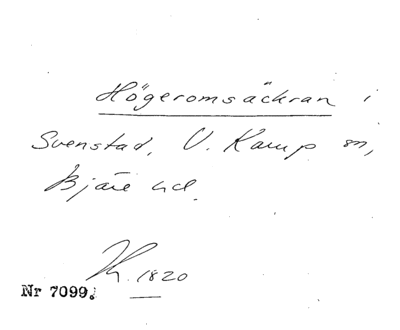 Högeromsäckran i
Svenstad, V. Karup sn,
Bjäre hd.
K. 1820
Nr 7099.